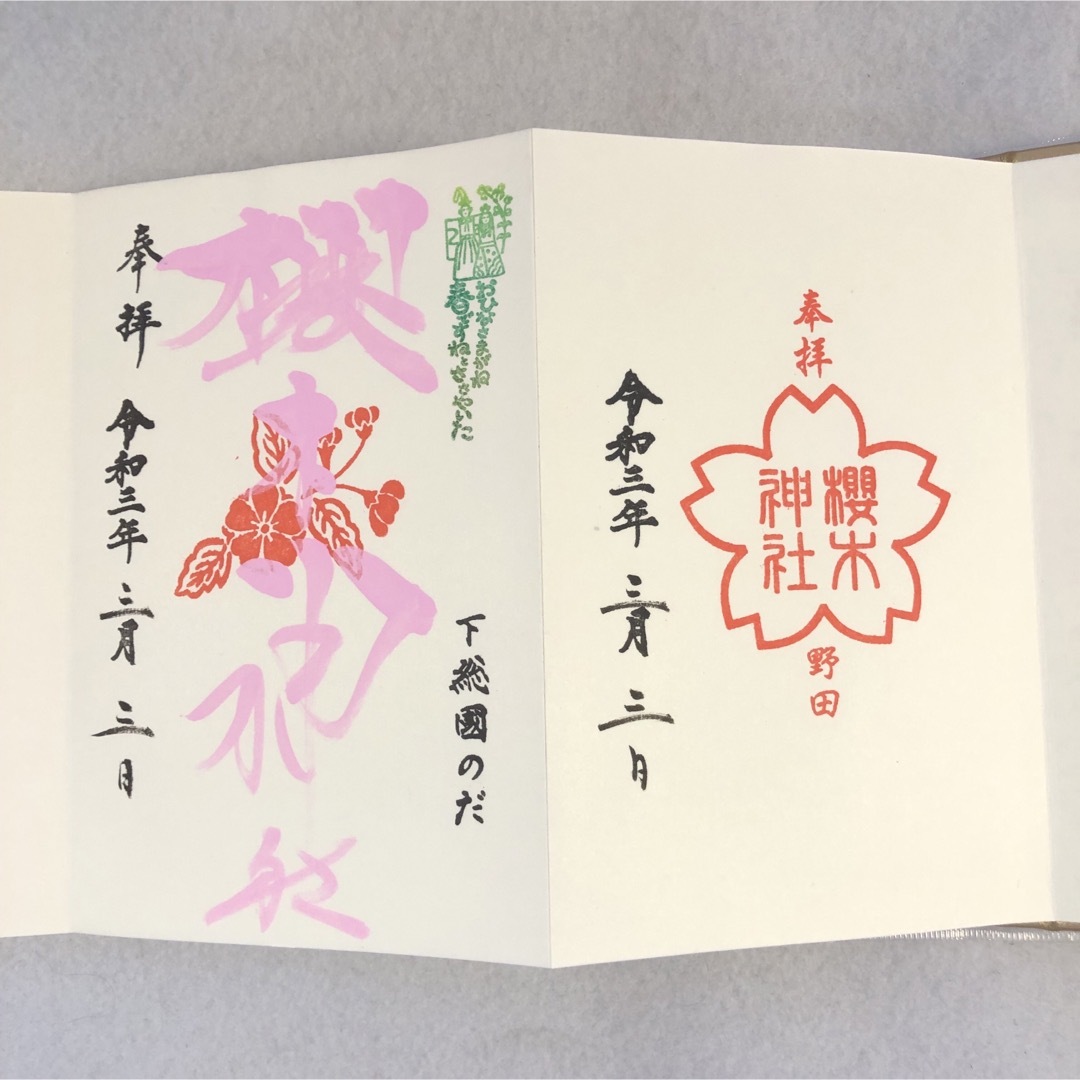 奉拝
櫻木
神社
野田
令和三年 三月 三日
おひなさまがね
春ですねとささやいた
下総國のだ
櫻
奉拝 令和三年 三月 三日